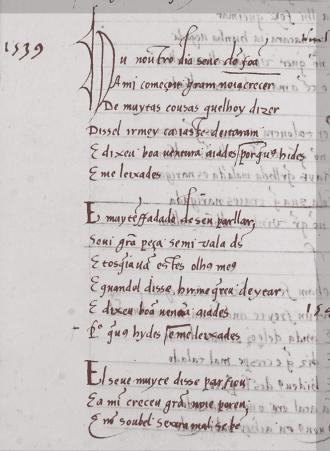 1539
Du noutro dia seve do foã
A mi começou gram noia crecer
De muytas cousas quelhoy dizer
Dissel irmey ca ia se deitaram
E dixeu boa ventura aiades por que hides
E me leixades
E muyt enfadado de seu parllar
Sevi grã peça se mi vala ds
E tosquiauã estes olhos meus
E quand el disse, hir me quereu deytar
E dixeu boã ventura aiades
Por que hydes e me leixades
El seve muyte disse par fiou
E a mi creceu grã noie poren
E nõ soubel se xera mal se bē